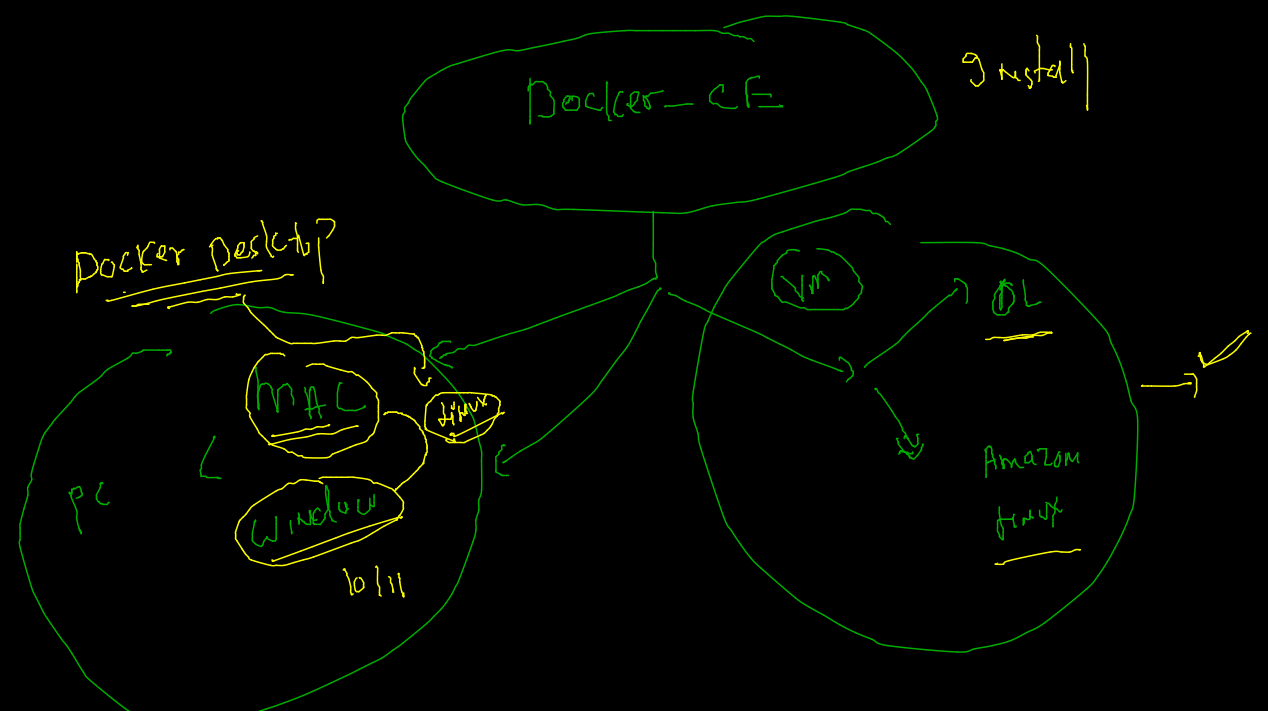 Docker-CE
Install
Docker Desktop
VM
OL
MAC
Linux
PC
Window
10/11
Amazon
Linux